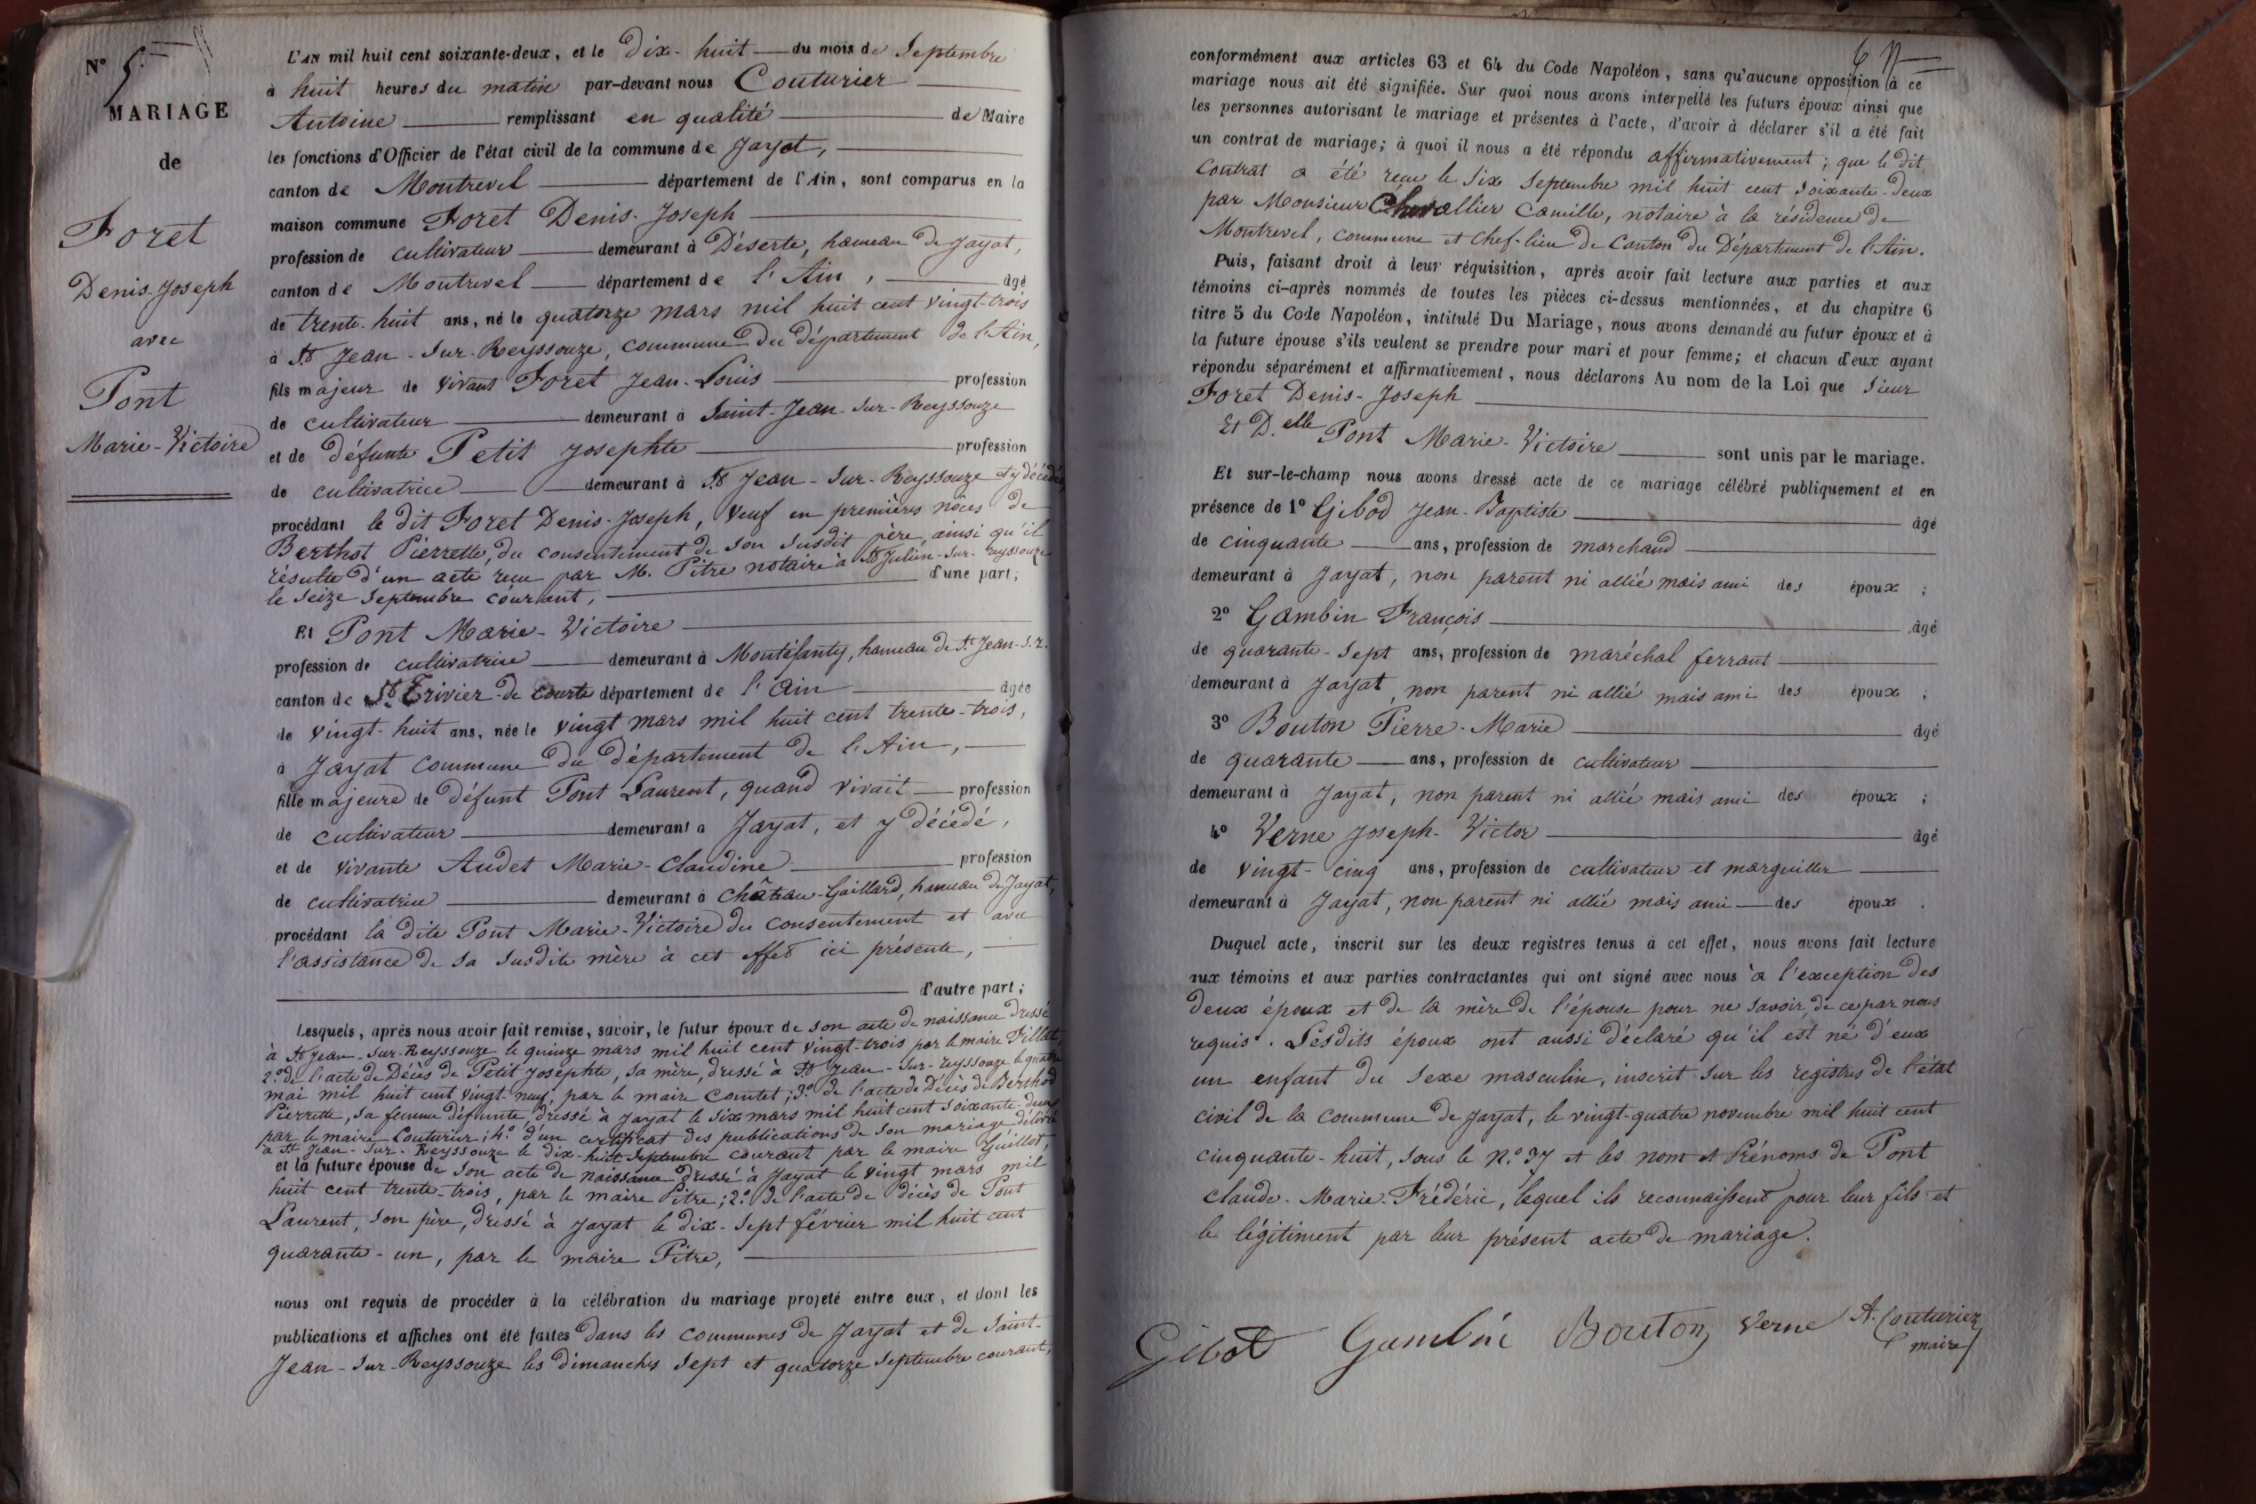 N° 5.
MARIAGE
de
Foret
Denis-Joseph
avec
Pont
Marie-Victoire
L'AN mil huit cent soixante-deux, et le dix-huit du mois de Septembre
à huit heures du matin par-devant nous Couturier
Antoine remplissant en qualité de Maire
les fonctions d'Officier de l'état civil de la commune de Jayat,
canton de Montrevel département de l'Ain, sont comparus en la
maison commune Foret Denis-Joseph
profession de cultivateur demeurant à Déserte, hameau de Jayat,
canton de Montrevel département de l'Ain, âgé
de trente-huit ans, né le quatorze mars mil huit cent vingt-trois
à St Jean-Sur-Reyssouze, commune du département de l'Ain,
fils majeur de vivant Foret Jean-Louis profession
de cultivateur demeurant à Saint-Jean-Sur-Reyssouze
et de défunte Petit Josephte profession
de cultivatrice demeurant à St Jean-Sur-Reyssouze et y décédée,
procédant le dit Foret Denis-Joseph, veuf en premières noces de
Berthot Pierrette, du consentement de son susdit père, ainsi qu'il
résulte d'un acte reçu par M. Pitre notaire à St Julien-sur-reyssouze
le seize Septembre courant, d'une part;
Et Pont Marie-Victoire
profession de cultivatrice demeurant à Montéfanty, hameau de St Jean-S.R.
canton de St Trivier-de Courte département de l'Ain âgée
de vingt-huit ans, née le vingt mars mil huit cent trente-trois,
à Jayat commune du département de l'Ain,
fille majeure de défunt Pont Laurent, quand vivait profession
de cultivateur demeurant à Jayat, et y décédé,
et de vivante Audet Marie-Claudine profession
de cultivatrice demeurant à Château-Gaillard, hameau de Jayat,
procédant la dite Pont Marie-Victoire du consentement et avec
l'assistance de sa susdite mère à cet effet ici présente,
d'autre part;
Lesquels, après nous avoir fait remise, savoir, le futur époux de son acte de naissance dressé
à St Jean-Sur-Reyssouze le quinze mars mil huit cent vingt-trois par le maire Villat;
2° de l'acte de Décès de Petit Josephte, sa mère, dressé à St Jean-Sur-reyssouze le quatre
mai mil huit cent vingt-neuf, par le maire Comtet; 3° de l'acte de Décès de Berthod
Pierrette, sa femme défunte, dressé à Jayat le six mars mil huit cent soixante-deux
par le maire Couturier; 4° d'un certificat des publications de son mariage délivré
à St Jean-Sur-Reyssouze le dix-huit Septembre courant par le maire Guillot
et la future épouse de son acte de naissance dressé à Jayat le vingt mars mil
huit cent trente-trois, par le maire Pitre; 2° de l'acte de décès de Pont
Laurent, son père, dressé à Jayat le dix-sept février mil huit cent
quarante-un, par le maire Pitre,
nous ont requis de procéder à la célébration du mariage projeté entre eux, et dont les
publications et affiches ont été faites dans les communes de Jayat et de Saint-
Jean-Sur-Reyssouze les dimanches sept et quatorze Septembre courant,
conformément aux articles 63 et 64 du Code Napoléon, sans qu'aucune opposition à ce
mariage nous ait été signifiée. Sur quoi nous avons interpellé les futurs époux ainsi que
les personnes autorisant le mariage et présentes à l'acte, d'avoir à déclarer s'il a été fait
un contrat de mariage; à quoi il nous a été répondu affirmativement; que le dit
Contrat a été reçu le six Septembre mil huit cent soixante-deux
par Monsieur Chevallier Camille, notaire à la résidence de
Montrevel, commune et chef-lieu de Canton du Département de l'Ain.
Puis, faisant droit à leur réquisition, après avoir fait lecture aux parties et aux
témoins ci-après nommés de toutes les pièces ci-dessus mentionnées, et du chapitre 6
titre 5 du Code Napoléon, intitulé Du Mariage, nous avons demandé au futur époux et à
la future épouse s'ils veulent se prendre pour mari et pour femme; et chacun d'eux ayant
répondu séparément et affirmativement, nous déclarons Au nom de la Loi que Sieur
Foret Denis-Joseph
Et D.elle Pont Marie-Victoire sont unis par le mariage.
Et sur-le-champ nous avons dressé acte de ce mariage célébré publiquement et en
présence de 1° Gibod Jean-Baptiste âgé
de cinquante ans, profession de marchand
demeurant à Jayat, non parent ni allié mais ami des époux;
2° Gambin François âgé
de quarante-sept ans, profession de maréchal ferrant
demeurant à Jayat, non parent ni allié mais ami des époux;
3° Bouton Pierre-Marie âgé
de quarante ans, profession de cultivateur
demeurant à Jayat, non parent ni allié mais ami des époux;
4° Verne Joseph-Victor âgé
de vingt-cinq ans, profession de cultivateur et marguiller
demeurant à Jayat, non parent ni allié mais ami des époux.
Duquel acte, inscrit sur les deux registres tenus à cet effet, nous avons fait lecture
aux témoins et aux parties contractantes qui ont signé avec nous à l'exception des
deux époux et de la mère de l'épouse pour ne savoir, de ce par nous
requis. Lesdits époux ont aussi déclaré qu'il est né d'eux
un enfant du sexe masculin, inscrit sur les registres de l'état
civil de la commune de Jayat, le vingt-quatre novembre mil huit cent
cinquante-huit, sous le N.° 37 et les nom et Prénoms de Pont
Claude-Marie-Frédéric, lequel ils reconnaissent pour leur fils et
le légitiment par leur présent acte de mariage.
Gibot Gambin Bouton Verne A. Couturier
maire